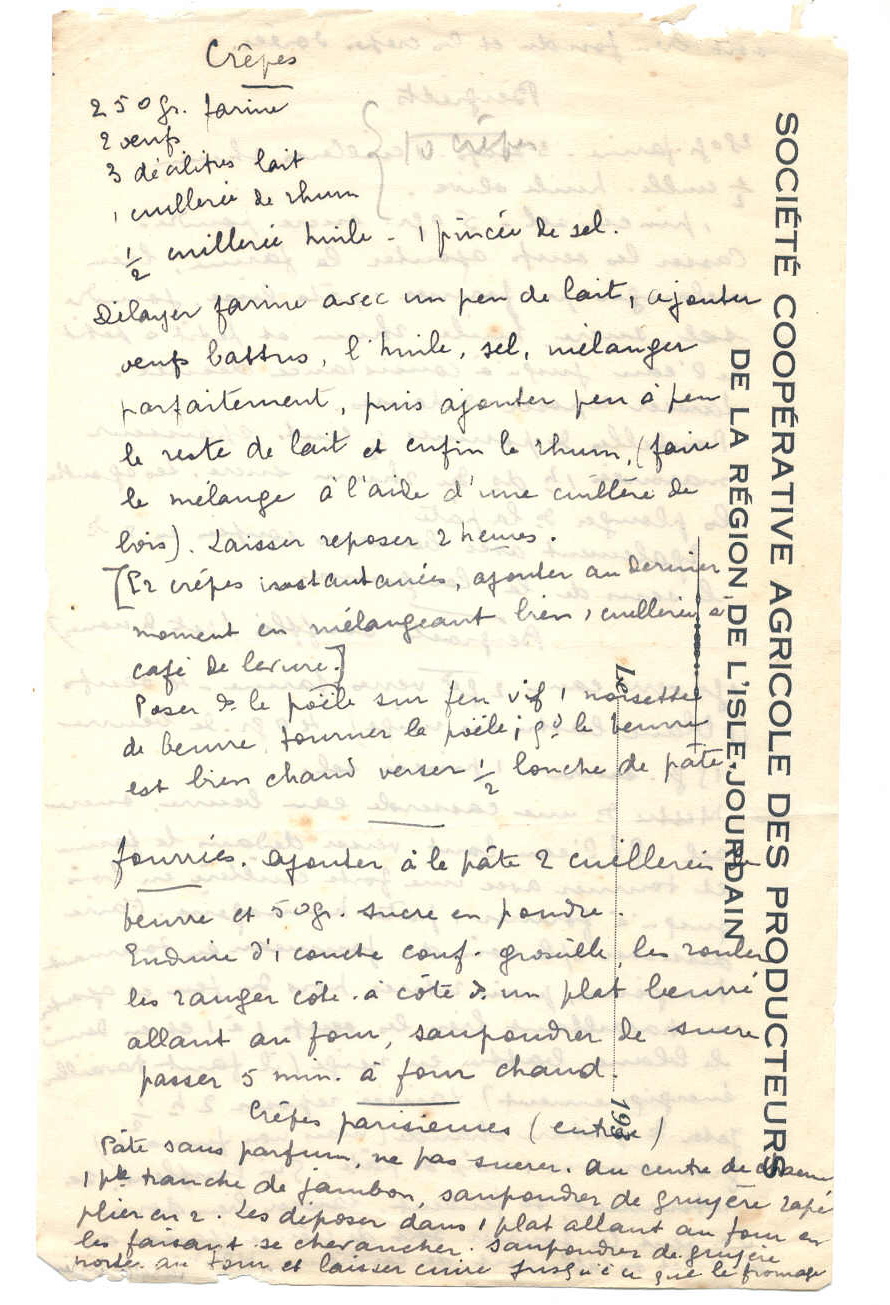 Crêpes
250 gr. farine
2 oeufs
3 décilitres lait
1 cuillerée de rhum
10 crêpes
1/2 cuillerée huile - 1 pincée de sel.
Délayer farine avec un peu de lait, ajouter
oeufs battus, l'huile, sel, mélanger
parfaitement, puis ajouter peu à peu
le reste de lait et enfin le rhum, (faire
le mélange à l'aide d'une cuillère de
bois). Laisser reposer 2 heures.
[Pr crêpes instantanées, ajouter au dernier
moment en mélangeant bien 1 cuillerée à
café de levure.]
Poser ds. le poële sur feu vif 1 noisette
de beurre, tourner la poële; qd le beurre
est bien chaud verser 1/2 louche de pâte.
fourrées. ajouter à le pâte 2 cuillerées
beurre et 50 gr. sucre en poudre.
Enduire d'1 couche conf. groseille, les rouler
les ranger côte à côte ds. un plat beurré
allant au four, saupoudrer de sucre
passer 5 min. à four chaud.
Crêpes parisiennes (entrée)
Pâte sans parfum, ne pas sucrer. au centre de chacune
1 pte tranche de jambon, saupoudrer de gruyère rapé
plier en 2. Les déposer dans 1 plat allant au four en
les faisant se chevaucher. saupoudrer de gruyère
au four et laisser cuire jusqu'à ce que le fromage
SOCIÉTÉ COOPÉRATIVE AGRICOLE DES PRODUCTEURS
DE LA RÉGION DE L'ISLE-JOURDAIN
Le 193